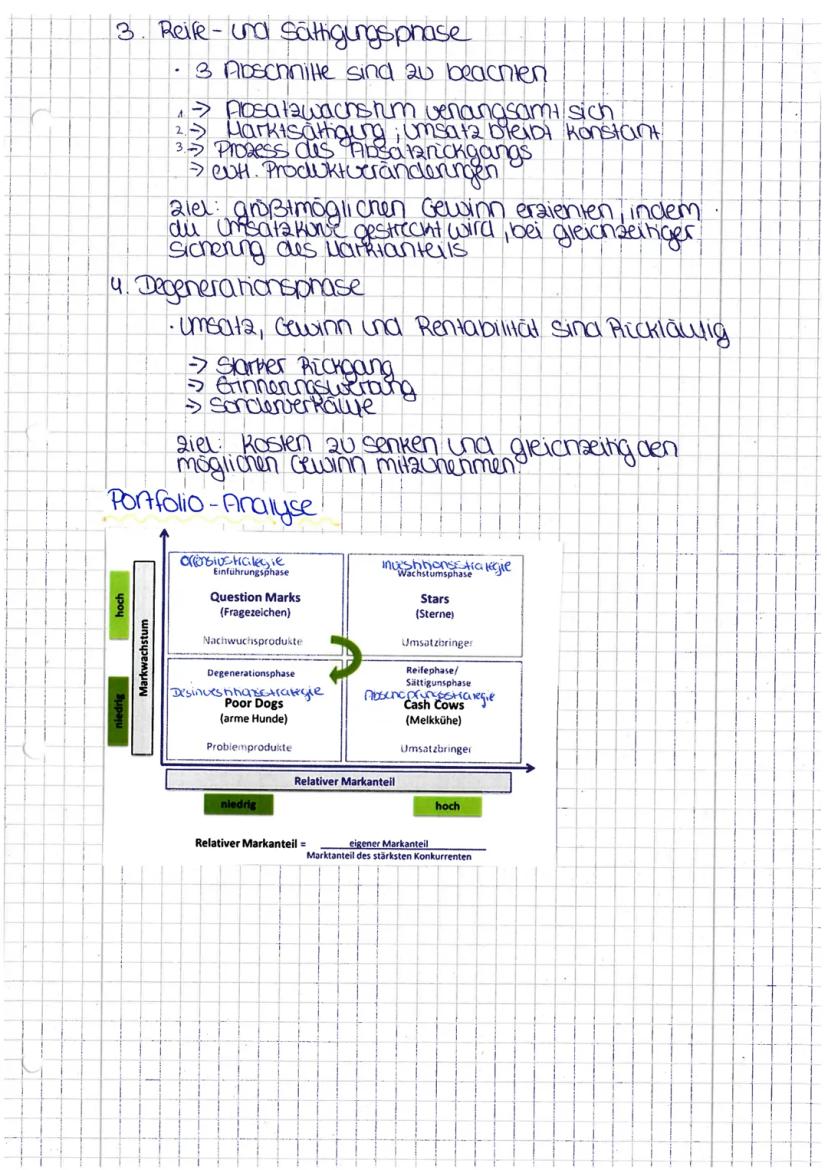 3. Reife- und Sättigungsphase
· 3 Abschnitte sind zu beachten
1 -> Absatzwachstum verlangsamt sich
2. -> Marktsättigung, Umsatz bleibt konstant
3. -> Prozess des Absatzrückgangs
-> evtl. Produktveränderungen
Ziel: größtmöglichen Gewinn erzielten, indem
die Umsatzkurve gestreckt wird, bei gleichzeitiger
Sicherung des Marktanteils
4. Degenerationsphase
· Umsatz, Gewinn und Rentabilität sind Rückläufig
-> Starker Rückgang
-> Erinnerungswerbung
-> Sonderverkäufe
Ziel: Kosten zu senken und gleichzeitig den
möglichen Gewinn mitzunehmen.
Portfolio-Analyse
Offensivstrategie
Einführungsphase
Question Marks
(Fragezeichen)
Nachwuchsprodukte
Investitionsstrategie
Wachstumsphase
Stars
(Sterne)
Umsatzbringer
Degenerationsphase
Desinvestitionsstrategie
Poor Dogs
(arme Hunde)
Problemprodukte
Reifephase/
Sättigunsphase
Abschöpfungsstrategie
Cash Cows
(Melkkühe)
Umsatzbringer
hoch
niedrig
Markwachstum
Relativer Markanteil
niedrig
hoch
Relativer Markanteil = eigener Markanteil
Marktanteil des stärksten Konkurrenten